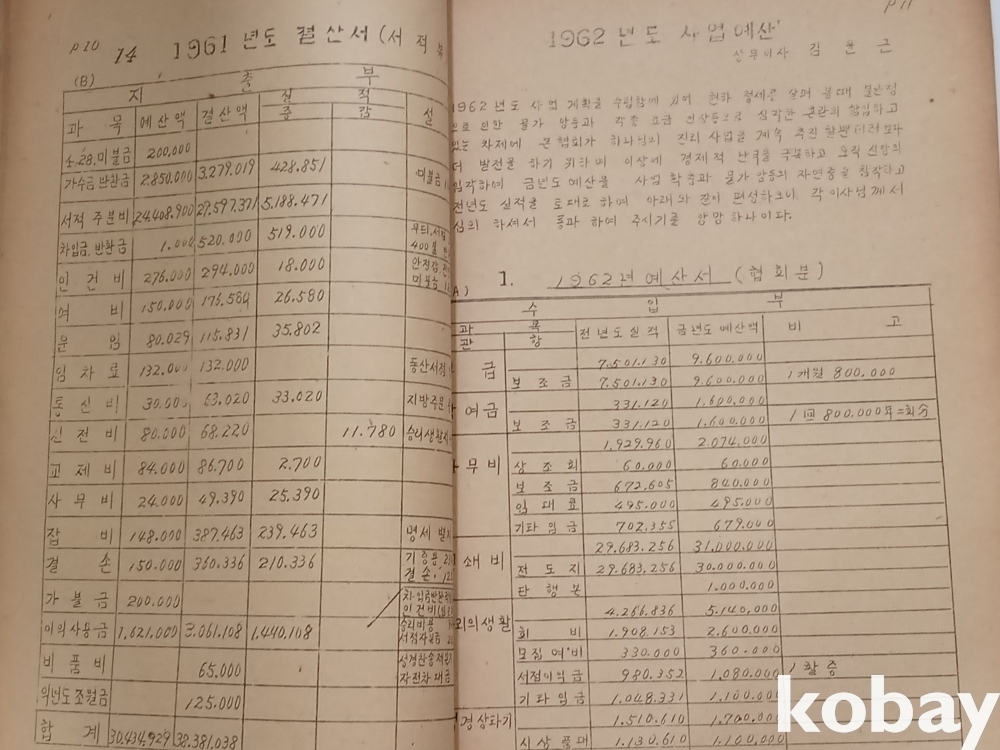 P10
14 1961년도 결산서(서적부
(B) 지 출 부
과 목 예산액 결산액 실 적 설
증 감
소.28.미불금 200.000
가수금 반환금 2.850.000 3.279.019 428.851 미불금
서적 주문비 24.408.900 29.597.371 5.188.471
차입금.반환금 1.000 520.000 519.000
인 건 비 276.000 294.000 18.000
여 비 150.000 176.580 26.580
운 임 80.029 115.831 35.802
임 차 료 132.000 132.000 동산서점
통 신 비 30.000 63.020 33.020 지방주문
선 전 비 80.000 68.220 11.780 승리생활
교 제 비 84.000 86.700 2.700
사 무 비 24.000 49.390 25.390
잡 비 148.000 387.463 239.463 명세 별지
결 손 150.000 360.336 210.336
결손.
가 불 금 200.000
인건비
이의사용금 1.621.000 3.061.108 1.440.108
비 품 비 65.000
자전차대금
익년도조월금 125.000
합 계 30.434.929 38.381.038
P11
1962년도 사업예산
상무이사 김 윤 근
1962년도 사업 계획을 수립함에 있어 현하 정세를 살펴 볼때 불안정
으로 인한 물가 앙등과 각종 요금 인상등으로 심각한 혼란이 합입하고
있는 차제에 본협회가 하나님의 진리 사업을 계속 추진 할뿐더러 보다
더 발전을 하기 위하여 이상에 경제적 난국을 극복하고 오직 신앙의
입각하여 금년도 예산을 사업 확충과 물가 앙등의 자연증을 참작하고
전년도 실적을 토대로 하여 아래와 같이 편성하오니 각 이사님께서
심의 하셔서 통과 하여 주시기를 앙망 하나이다.
1. 1962년 예산서 (협회분)
A)
수 입 부
과 목 전년도실적 금년도예산액 비 고
관 항
급 7.501.130 9.600.000
보 조 금 7.501.130 9.600.000 1개월 800.000
여금 331.120 1.600.000
보 조 금 331.120 1.600.000 1回 800.000
무비 1.929.960 2.074.000
상 조 회 60.000 60.000
보 조 금 672.605 840.000
임 대 료 495.000 495.000
기타 입금 702.355 679.000
쇄비 29.683.256 31.000.000
전 도 지 29.683.256 30.000.000
단 행 본 1.000.000
리의생활 4.266.836 5.140.000
회 비 1.908.153 2.600.000
모집 여비 330.000 360.000
서점이익금 980.352 1.080.000 1할증
기타입금 1.048.331 1.100.000
경상타기 1.510.610 1.700.000
시상품대 1.130.610 1.100.000
kobay